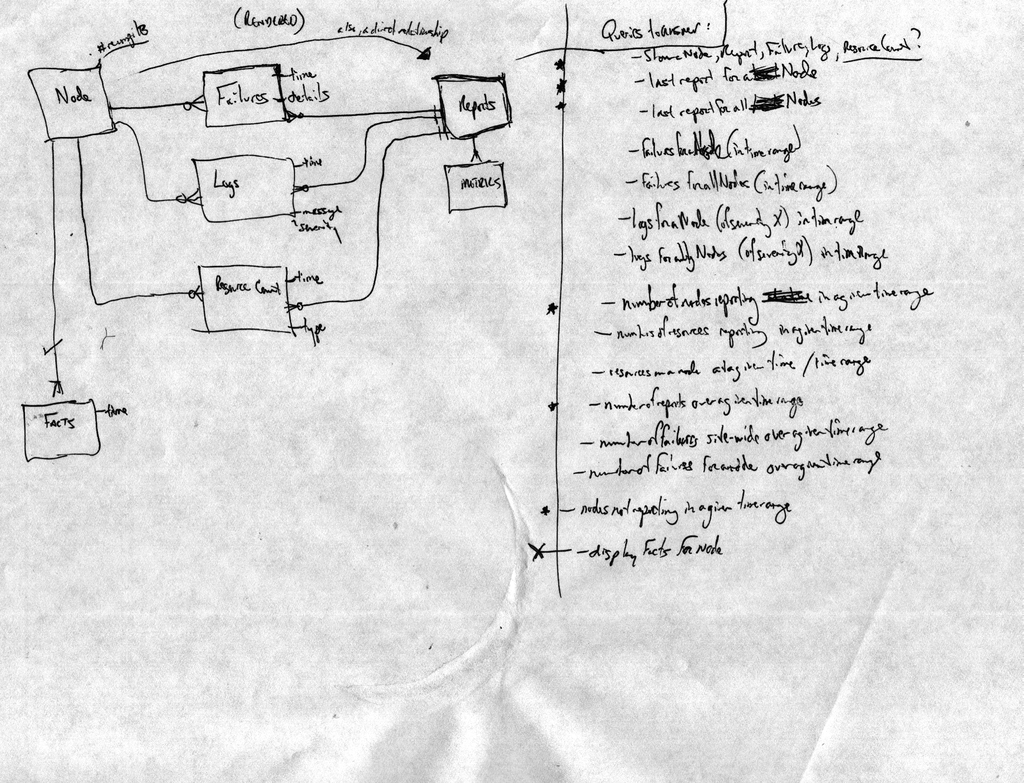 (RENDERED)
also, a direct relationship
Node
Failures
time
details
Reports
Logs
time
message
severity
METRICS
Resource Count
time
type
FACTS
time
Queries to answer:
- Store Node, Report, Failures, Logs, Resource Count?
- last report for a Node
- last report for all Nodes
- failures for a Node (in time range)
- Failures for all Nodes (in time range)
- logs for a Node (of severity X) in time range
- logs for all Nodes (of severity X) in time range
- number of nodes reporting in a given time range
- number of resources reporting in a given time range
- resources on a node at a given time / time range
- number of reports over a given time range
- number of failures site-wide over a given time range
- number of failures for a node over a given time range
- nodes not reporting in a given time range
- display Facts for Node